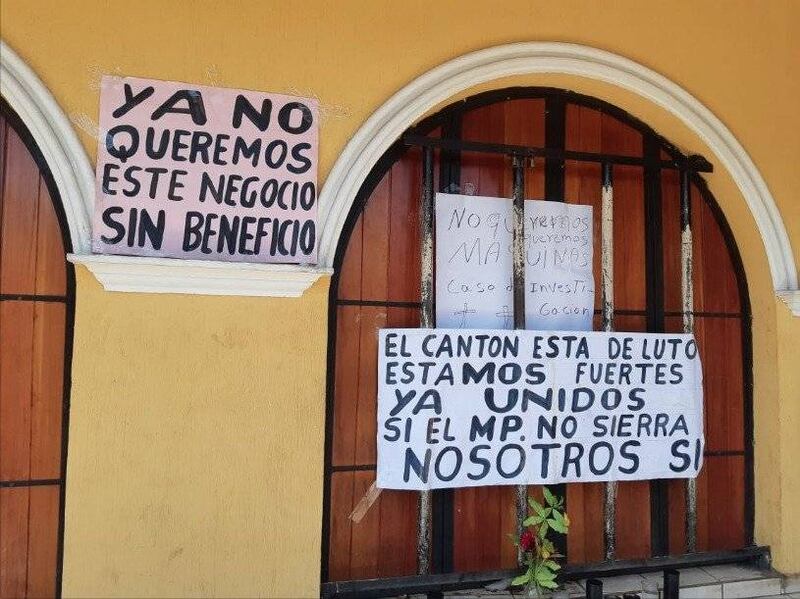 YA NO
QUEREMOS
ESTE NEGOCIO
SIN BENEFICIO
NO QUEREMOS
queremos
MAQUINAS
Caso de Investi-
gacion
EL CANTON ESTA DE LUTO
ESTAMOS FUERTES
YA UNIDOS
SI EL MP. NO SIERRA
NOSOTROS SI